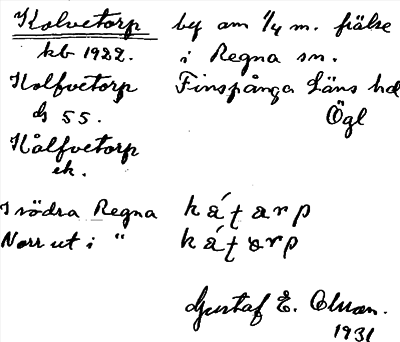 Kolvetorp by om 1/4 m. frälse
kb 1922. i Regna sn.
Kolfvetorp Finspånga Läns hd
ds 55. Ögl
Kålfvetorp
ek.
I södra Regna kátarp
Norrut i " kátarp
Gustaf E. Olsson.
1931